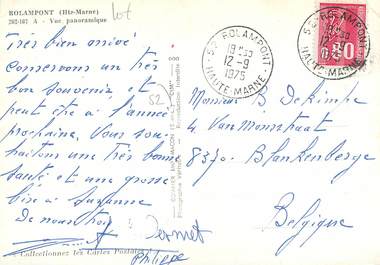 ROLAMPONT (Hte-Marne)
202-107 A - Vue panoramique
lot
Très bien arrivé
Conservons un très
bon souvenir et
peut être à l'année
prochaine. Vous sou-
haitons une très bonne
santé et une grosse
bise à Suzanne
De nous trois
Philippe
52
52 ROLAMPONT
12-9
1975
HAUTE-MARNE
52 ROLAMPONT
HAUTE-MARNE
0,80
Monsieur B Dekimpe
4 Van Monstraat
8370. Blankenberge
Belgique
Collectionnez les Cartes Postales